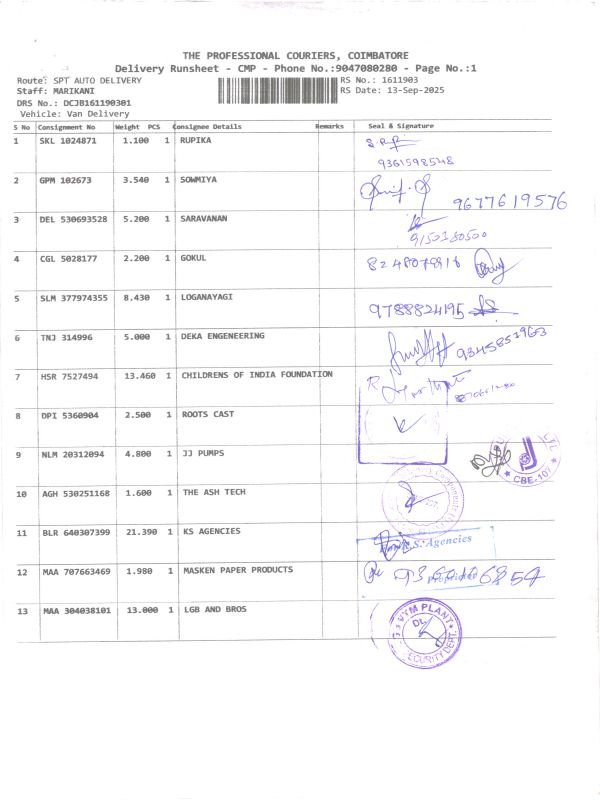 THE PROFESSIONAL COURIERS, COIMBATORE
Delivery Runsheet - CMP - Phone No.:9047080280 - Page No.:1
Route: SPT AUTO DELIVERY RS No.: 1611903
Staff: MARIKANI RS Date: 13-Sep-2025
DRS No.: DCJB161190301
Vehicle: Van Delivery
S No Consignment No Weight PCS Consignee Details Remarks Seal & Signature
1 SKL 1024871 1.100 1 RUPIKA
9361598548
2 GPM 102673 3.540 1 SOWMIYA
9677619576
3 DEL 530693528 5.200 1 SARAVANAN
4 CGL 5028177 2.200 1 GOKUL
5 SLM 377974355 8.430 1 LOGANAYAGI 9788824195
6 TNJ 314996 5.000 1 DEKA ENGENEERING
7 HSR 7527494 13.460 1 CHILDRENS OF INDIA FOUNDATION
8 DPI 5360904 2.500 1 ROOTS CAST
9 NLM 20312094 4.800 1 JJ PUMPS
CBE-107
10 AGH 530251168 1.600 1 THE ASH TECH
11 BLR 640307399 21.390 1 KS AGENCIES
S. Agencies
12 MAA 707663469 1.980 1 MASKEN PAPER PRODUCTS
13 MAA 304038101 13.000 1 LGB AND BROS
VTM PLANT
SECURITY DEPT.